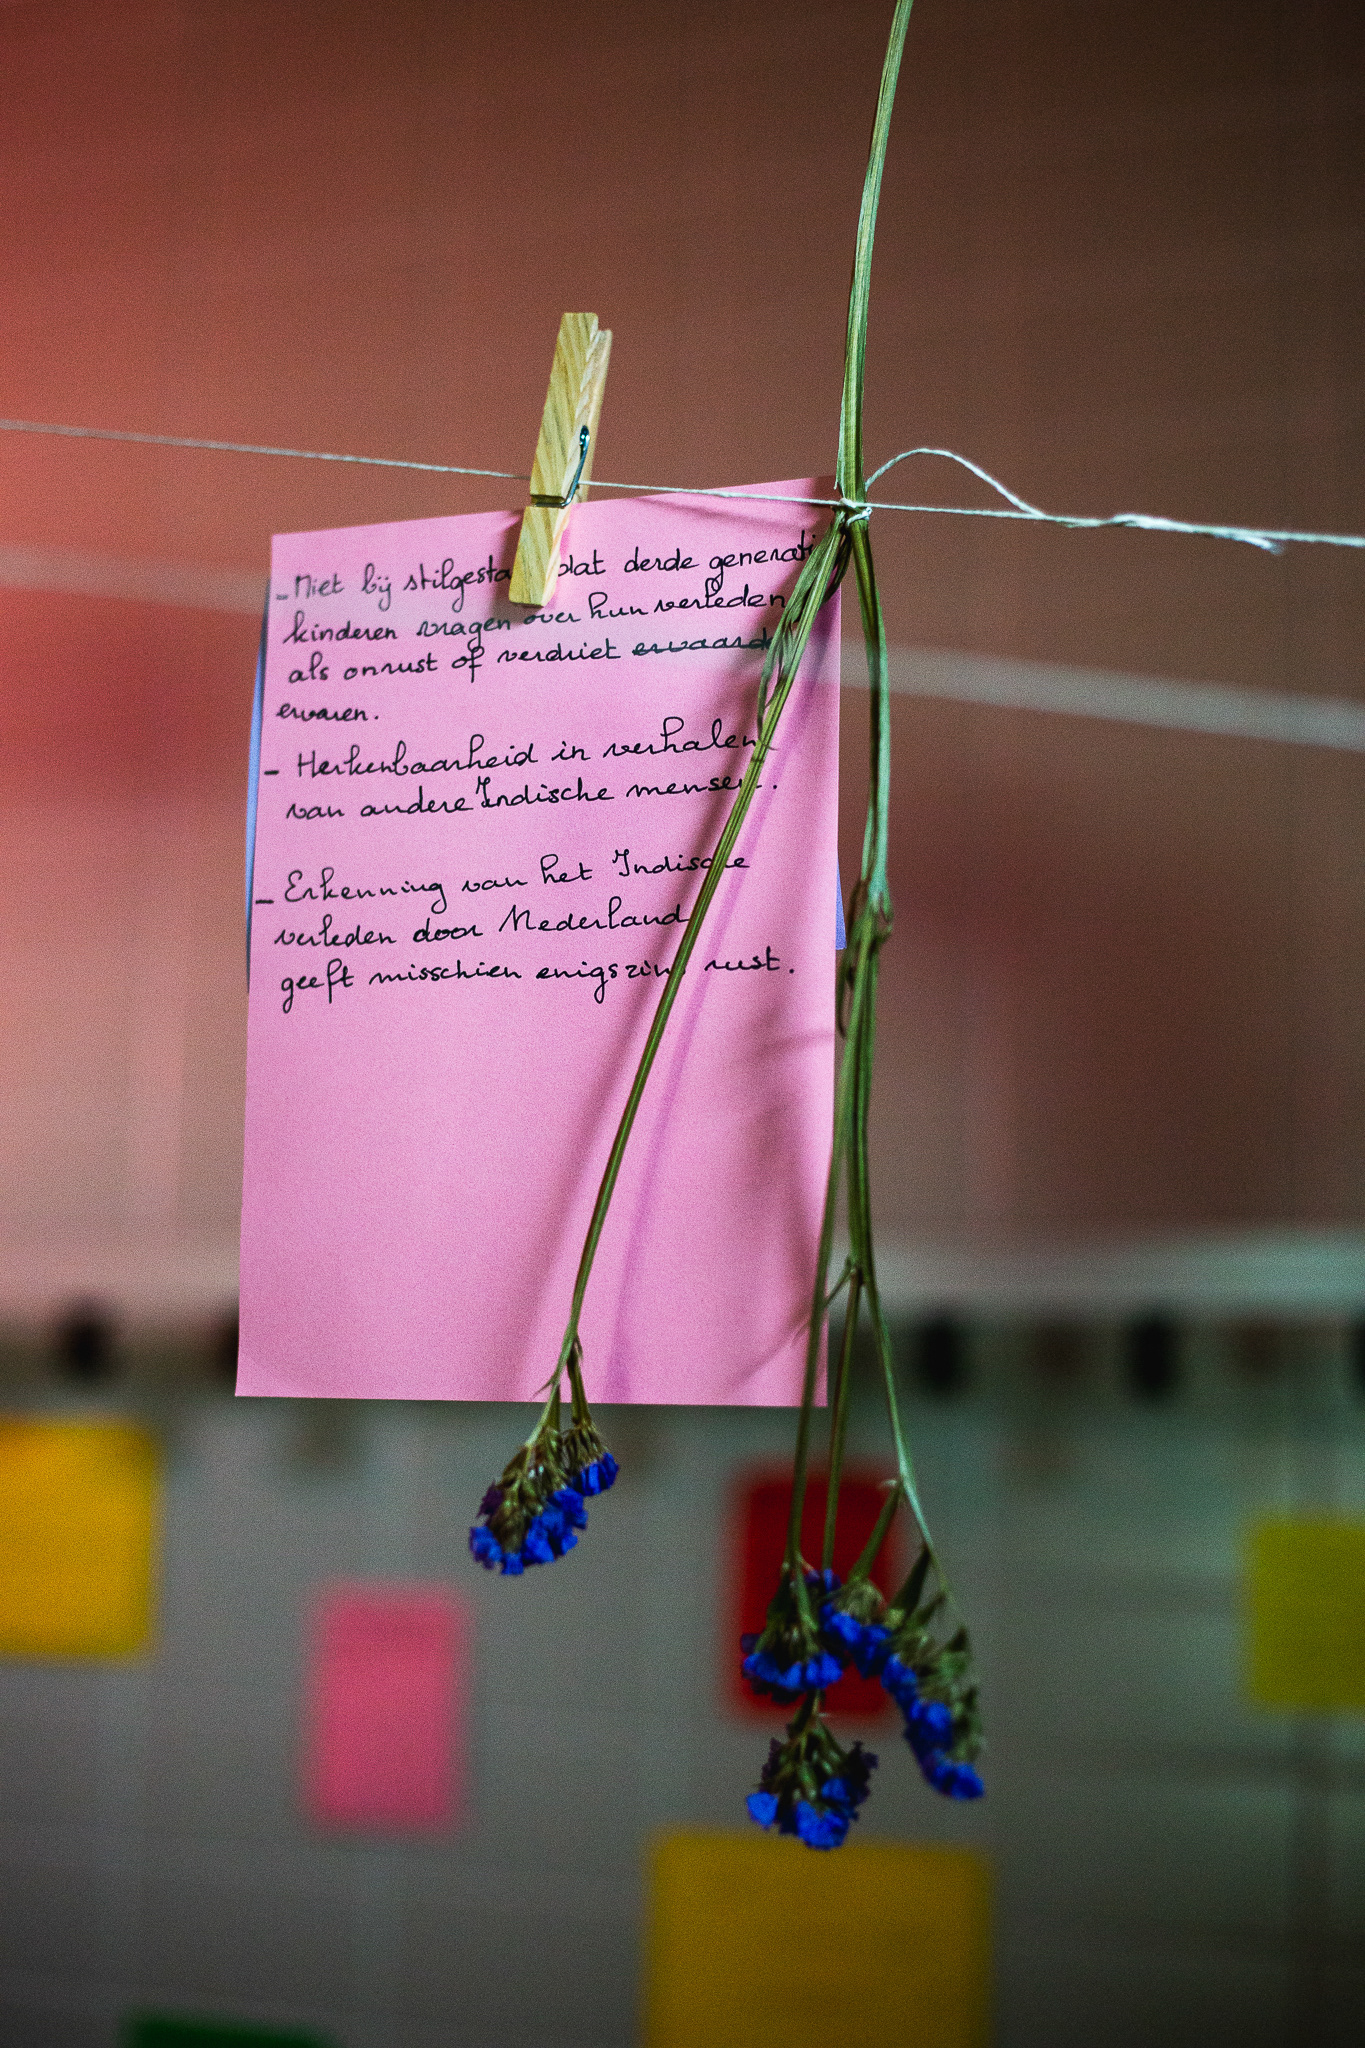 - Niet bij stilgesta dat derde generati
kinderen vragen over hun verleden
als onrust of verdriet ervaard
ervaren.
- Herkenbaarheid in verhalen
van andere Indische mensen.
- Erkenning van het Indische
verleden door Nederland
geeft misschien enigszins rust.